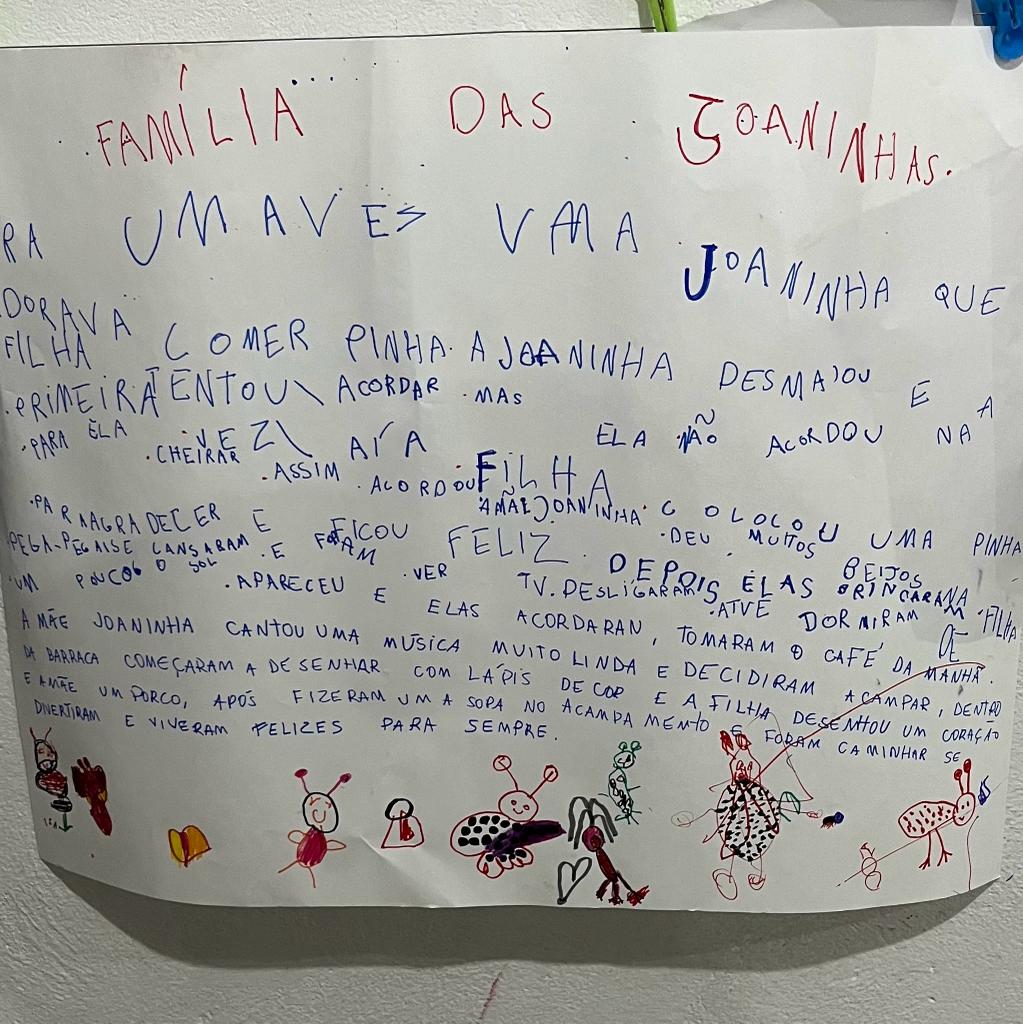 FAMÍLIA DAS JOANINHAS.
RA UMA VES VMA JOANINHA QUE
DORAVA COMER PINHA. A JOANINHA DESMAIOU E A
FILHA TENTOU ACORDAR MAS ELA NÃO ACORDOU NA
PRIMEIRA VEZ AÍ A FILHA COLOCOU UMA PINHA
PARA ELA CHEIRAR ASSIM ACORDOU A MÃE JOANINHA. DEU MUITOS BEIJOS NA FILHA
PARA AGRADECER E FICOU FELIZ. DEPOIS ELAS BRINCARAM DE
PEGA-PEGA E SE CANSARAM E FORAM VER TV. DESLIGARAM A TV E DORMIRAM
UM POUCO O SOL APARECEU E ELAS ACORDARAN, TOMARAM O CAFÉ DA MANHÃ.
A MÃE JOANINHA CANTOU UMA MÚSICA MUITO LINDA E DECIDIRAM ACAMPAR, DENTRO
DA BARRACA COMEÇARAM A DESENHAR COM LÁPIS DE COR E A FILHA DESENHOU UM CORAÇÃO
E A MÃE UM PORCO, APÓS FIZERAM UMA SOPA NO ACAMPAMENTO E FORAM CAMINHAR SE
DIVERTIRAM E VIVERAM FELIZES PARA SEMPRE.